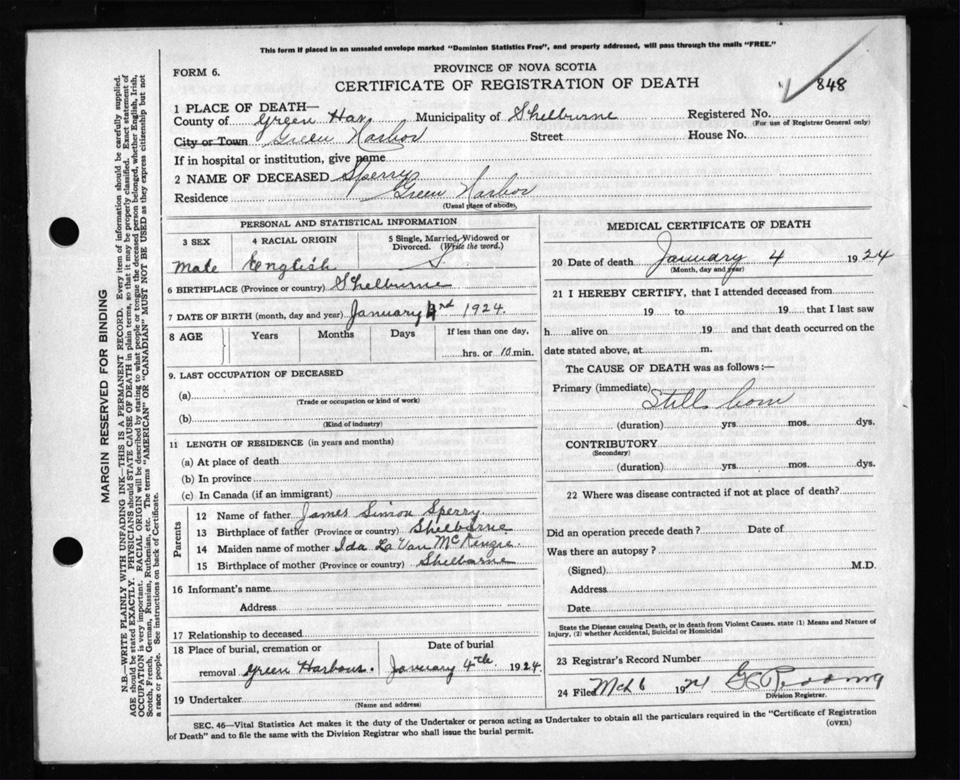 This form if placed in an unsealed envelope marked "Dominion Statistics Free", and properly addressed, will pass through the mails "FREE."
FORM 6.
PROVINCE OF NOVA SCOTIA
CERTIFICATE OF REGISTRATION OF DEATH
848
1 PLACE OF DEATH—
County of Green Har Municipality of Shelburne Registered No.
(For use of Registrar General only)
City or Town Green Harbor Street House No.
If in hospital or institution, give name
2 NAME OF DECEASED Sperry
Residence Green Harbor
(Usual place of abode)
PERSONAL AND STATISTICAL INFORMATION
3 SEX 4 RACIAL ORIGIN 5 Single, Married, Widowed or Divorced. (Write the word.)
Male English S
6 BIRTHPLACE (Province or country) Shelburne
7 DATE OF BIRTH (month, day and year) January rd 1924.
8 AGE Years Months Days If less than one day,
hrs. or 10 min.
9. LAST OCCUPATION OF DECEASED
(a)
(Trade or occupation or kind of work)
(b)
(Kind of industry)
11 LENGTH OF RESIDENCE (in years and months)
(a) At place of death
(b) In province
(c) In Canada (if an immigrant)
Parents
12 Name of father James Simon Sperry
13 Birthplace of father (Province or country) Shelburne
14 Maiden name of mother Ida La Van McKenzie.
15 Birthplace of mother (Province or country) Shelburne
16 Informant's name
Address
17 Relationship to deceased
18 Place of burial, cremation or Date of burial
removal Green Harbour. January 4th 1924.
19 Undertaker
(Name and address)
MEDICAL CERTIFICATE OF DEATH
20 Date of death January 4 1924
(Month, day and year)
21 I HEREBY CERTIFY, that I attended deceased from
19 to 19 that I last saw
h alive on 19 and that death occurred on the
date stated above, at m.
The CAUSE OF DEATH was as follows:—
Primary (immediate) Still born
(duration) yrs. mos. dys.
CONTRIBUTORY
(Secondary)
(duration) yrs. mos. dys.
22 Where was disease contracted if not at place of death?
Did an operation precede death? Date of
Was there an autopsy?
(Signed) M.D.
Address
Date
State the Disease causing Death, or in death from Violent Causes. state (1) Means and Nature of
Injury, (2) whether Accidental, Suicidal or Homicidal
23 Registrar's Record Number
24 Filed Mch 6 1924
Division Registrar.
SEC. 46—Vital Statistics Act makes it the duty of the Undertaker or person acting as Undertaker to obtain all the particulars required in the "Certificate of Registration
of Death" and to file the same with the Division Registrar who shall issue the burial permit.
(OVER)
MARGIN RESERVED FOR BINDING
N.B.—WRITE PLAINLY WITH UNFADING INK—THIS IS A PERMANENT RECORD. Every item of information should be carefully supplied.
AGE should be stated EXACTLY. PHYSICIANS should STATE CAUSE OF DEATH in plain terms, so that it may be properly classified. Exact statement of
OCCUPATION is very important. RACIAL ORIGIN will be described by stating to what people or tongue the deceased person belonged, whether English, Irish,
Scotch, French, German, Russian, Ruthenian, etc. The terms "AMERICAN" OR "CANADIAN" MUST NOT BE USED as they express citizenship but not
a race or people. See instructions on back of Certificate.